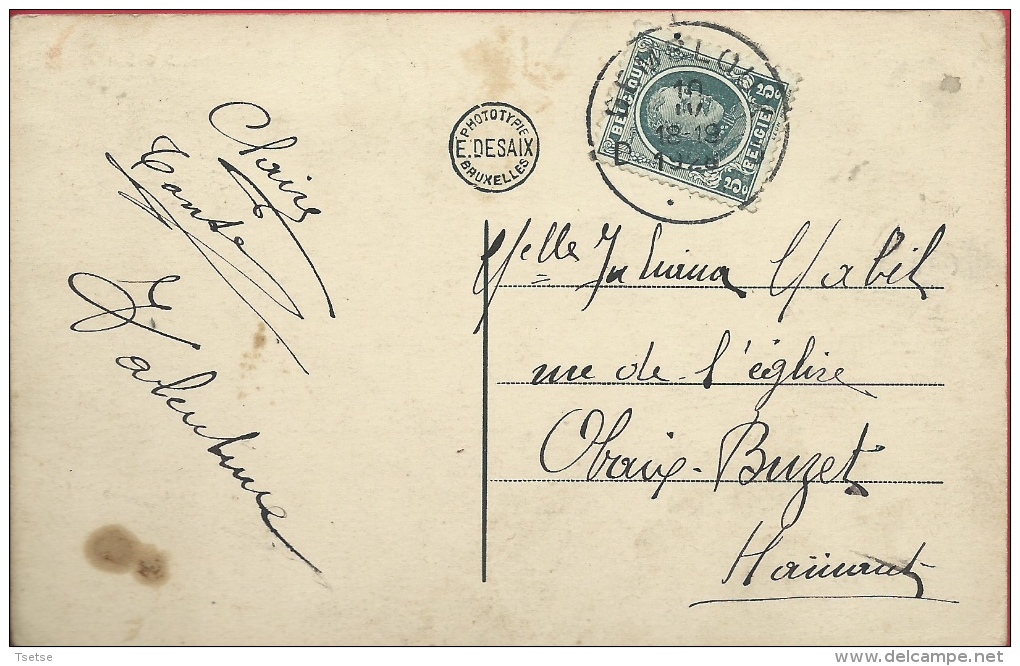 Claire
Valentine
PHOTOTYPIE
E. DESAIX
BRUXELLES
BELGIQUE
5c
BELGIE
5c
18-19
Melle Juliana Mabil
rue de l'église
Obaix-Buzet
Hainaut
Tsetse
delcampe.net